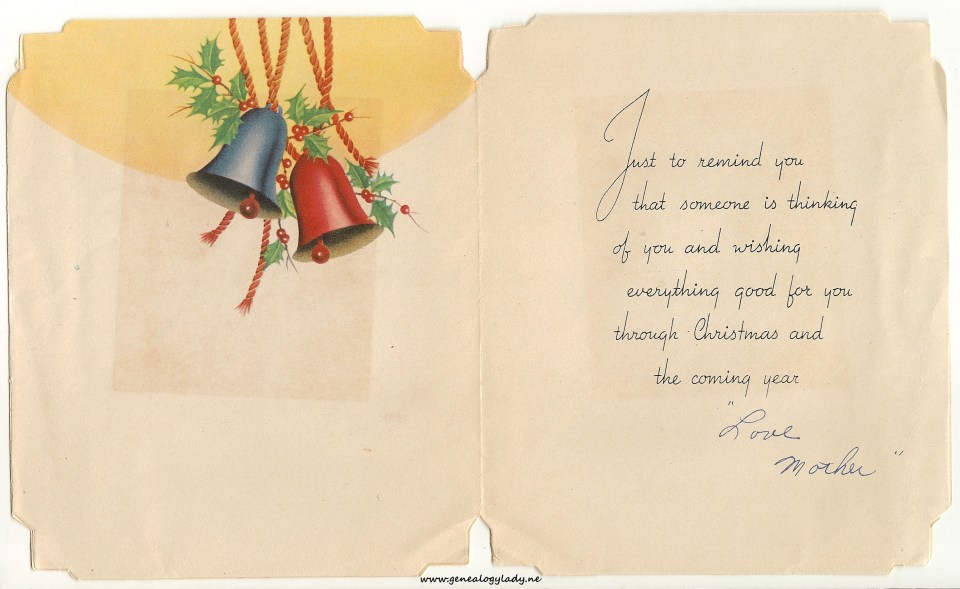 Just to remind you
that someone is thinking
of you and wishing
everything good for you
through Christmas and
the coming year
"Love
Mother"
www.genealogylady.ne